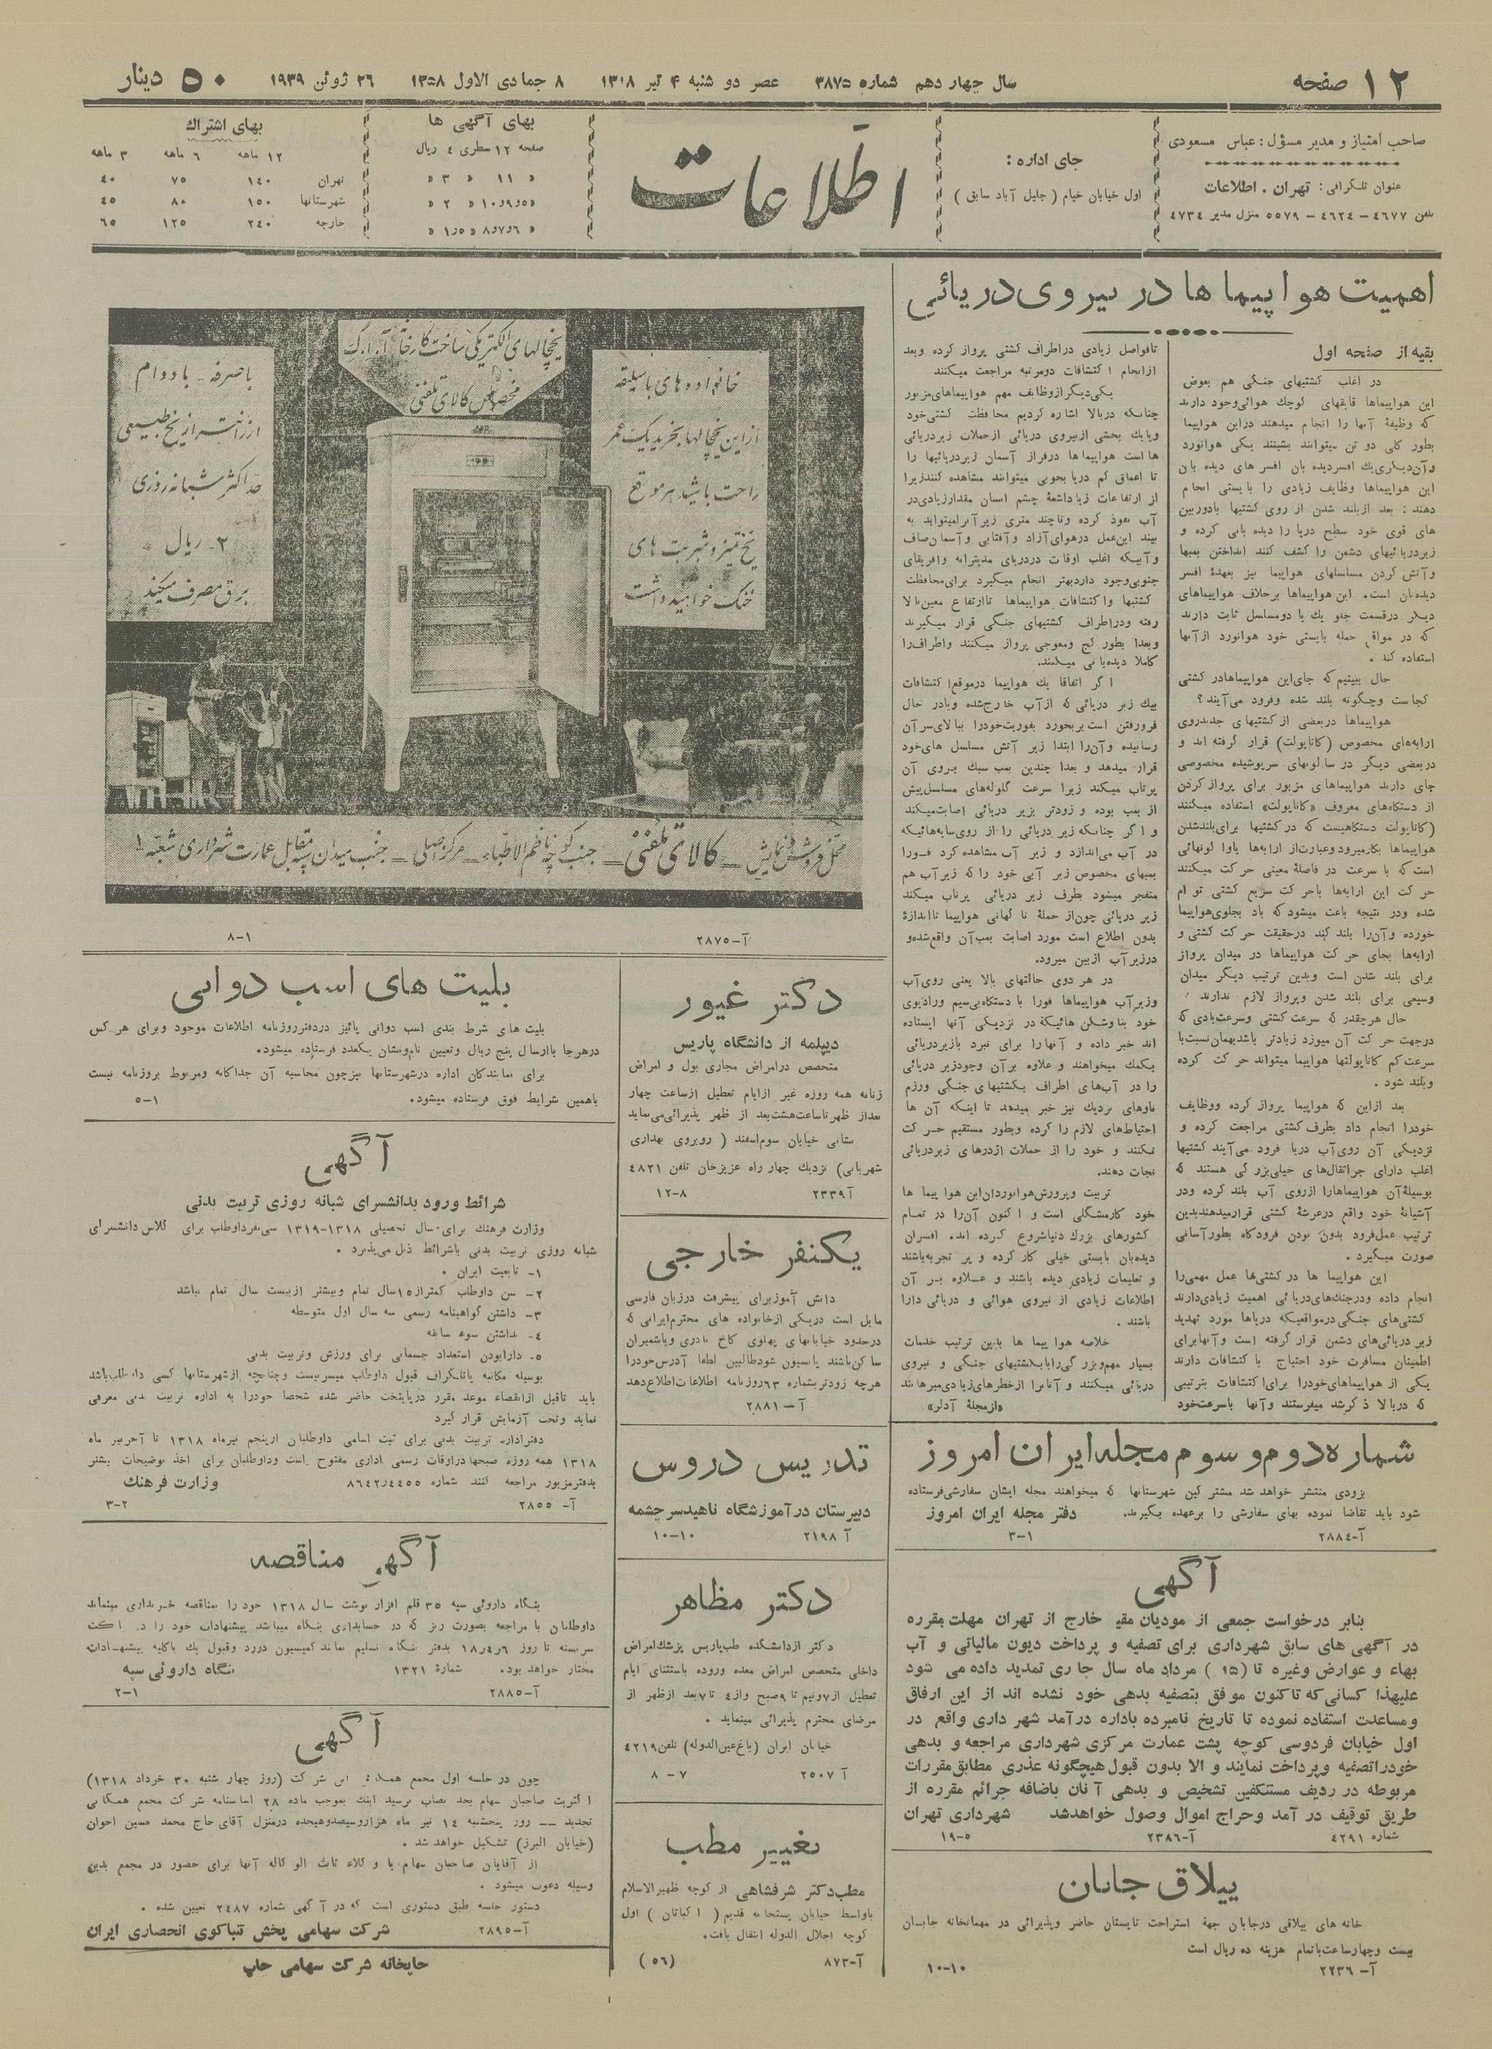 ۱۲ صفحه
سال چهاردهم شماره ۳۸۷۵
عصر دو شنبه ۴ تیر ۱۳۱۸
۸ جمادی الاول ۱۳۵۸
۲۶ ژوئن ۱۹۳۹
۵۰ دینار
صاحب امتیاز و مدیر مسؤل : عباس مسعودی
عنوان تلگرافی : تهران . اطلاعات
تلفن ۴۶۷۷ – ۴۶۲۴ – ۵۵۷۹ منزل مدیر ۴۷۳۴
جای اداره :
اول خیابان خیام ( جلیل آباد سابق )
اطلاعات
بهای آگهی ها
صفحه ۱۲ سطری ۴ ریال
« ۱۱ « ۳ «
« ۵و۹و۱۰ « ۲ «
« ۶و۷و۸ « ۱٫۵ «
بهای اشتراك
۱۲ ماهه ۶ ماهه ۳ ماهه
تهران ۱۴۰ ۷۵ ۴۰
شهرستانها ۱۵۰ ۸۰ ۴۵
خارجه ۲۴۰ ۱۲۵ ۶۵
اهمیت هواپیماها در نیروی دریائی
بقیه از صفحه اول
در اغلب کشتیهای جنگی هم بعوض
این هواپیماها قایقهای کوچك هوائی وجود دارند
که وظیفهٔ آنها را انجام میدهند دراین هواپیما
بطور کلی دو تن میتوانند بنشینند یکی هوانورد
وآن‌دیگری یك افسردیده بان افسر های دیده بان
این هواپیماها وظایف زیادی را بایستی انجام
دهند : بعد ازبلند شدن از روی کشتیها بادوربین
های قوی خود سطح دریا را دیده بانی کرده و
زیردریائیهای دشمن را کشف کنند انداختن بمبها
وآتش کردن مسلسلهای هواپیما نیز بعهدهٔ افسر
دیده‌بان است. این هواپیماها برخلاف هواپیماهای
دیگر درقسمت جلو یك یا دومسلسل ثابت دارند
که در مواقع حمله بایستی خود هوانورد ازآنها
استفاده کند .
حال ببینیم که جای‌این هواپیماها درکشتی
کجاست وچگونه بلند شده وفرود می‌آیند؟
هواپیماها دربعضی از کشتیهای جدیدروی
ارابه‌های مخصوص (کاتاپولت) قرار گرفته اند و
دربعضی دیگر در سالونهای سرپوشیده مخصوصی
جای دارند هواپیماهای مزبور برای پرواز کردن
از دستگاه‌های معروف «کاتاپولت» استفاده میکنند
(کاتاپولت دستگاهیست که درکشتیها برای بلندشدن
هواپیماها بکارمیرود وعبارت از ارابه‌ها یاوا گونهائی
است که با سرعت در فاصلهٔ معینی حرکت میکنند
حرکت این ارابه‌ها باحرکت سریع کشتی توام
شده ودر نتیجه باعث میشود که باد بجلوی هواپیما
خورده وآن‌را بلند کند درحقیقت حرکت کشتی و
ارابه‌ها بجای حرکت هواپیماها در میدان پرواز
برای بلند شدن است وبدین ترتیب دیگر میدان
وسیعی برای بلند شدن وپرواز لازم ندارند .
حال هرچقدر که سرعت کشتی وسرعت بادی که
درجهت حرکت آن میوزد زیادتر باشد بهمان نسبت با
سرعت کم کاتاپولتها هواپیما میتواند حرکت کرده
وبلند شود .
بعد ازاین که هواپیما پرواز کرده ووظایف
خودرا انجام داد بطرف کشتی مراجعت کرده و
نزدیکی آن روی آب دریا فرود می‌آیند کشتیها
اغلب دارای جراثقال‌های خیلی بزرگی هستند که
بوسیلهٔ آن هواپیماهارا ازروی آب بلند کرده ودر
آشیانهٔ خود واقع درعرشهٔ کشتی قرارمیدهند بدین
ترتیب عمل فرود بدون بودن فرودگاه بطورآسانی
صورت میگیرد .
این هواپیما ها در کشتی‌ها عمل مهمی را
انجام داده ودرجنك‌های دریائی اهمیت زیادی دارند
کشتی‌های جنگی درمواقعیکه دریاها مورد تهدید
زیر دریائی‌های دشمن قرار گرفته است وآنها برای
اطمینان مسافرت خود احتیاج با کتشافات دارند
یکی از هواپیماهای خودرا برای اکتشافات بترتیبی
که دربالا ذکرشد میفرستند وآنها باسرعت خود
تافواصل زیادی دراطراف کشتی پرواز کرده وبعد
ازانجام اکتشافات دومرتبه مراجعت میکنند
یکی دیگر از وظایف مهم هواپیماهای مزبور
چنانکه دربالا اشاره کردیم محافظت کشتی خود
ویایك بخشی ازنیروی دریائی ازحملات زیردریائی
ها است هواپیماها درفراز آسمان زیردریائیها را
تا اعماق کم دریا بخوبی میتوانند مشاهده کنند زیرا
از ارتفاعات زیاد اشعهٔ چشم انسان مقدار زیادی در
آب نفوذ کرده وتاچند متری زیرآب را میتواند به
بیند این عمل درهوای آزاد وآفتابی وآسمان صاف
وآبیکه اغلب اوقات دردریای مدیترانه وافریقای
جنوبی وجود دارد بهتر انجام میگیرد برای محافظت
کشتیها واکتشافات هواپیماها تاارتفاع معین بالا
رفته ودراطراف کشتیهای جنگی قرار میگیرند
وبعدا بطور کج ومعوجی پرواز میکنند واطراف را
کاملا دیده‌بانی میکنند.
اگر اتفاقا یك هواپیما درموقع اکتشافات
بیك زیر دریائی که ازآب خارج شده ویادر حال
فرورفتن است بربخورد بفوریت خودرا ببالای سرآن
رسانیده وآن‌را ابتدا زیر آتش مسلسل های خود
قرار میدهد و بعدا چندین بمب سبك بروی آن
پرتاب میکند زیرا سرعت گلوله‌های مسلسل بیش
از بمب بوده و زودتر بزیر دریائی اصابت میکند
واگر چنانکه زیر دریائی را از روی سایه‌هائیکه
در آب می‌اندازد و زیر آب مشاهده کرد فورا
بمبهای مخصوص زیر آبی خود را که زیرآب هم
منفجر میشود بطرف زیر دریائی پرتاب میکند
زیر دریائی چون از حملهٔ ناگهانی هواپیما تااندازهٔ
بدون اطلاع است مورد اصابت بمب آن واقع شده و
درزیرآب ازبین میرود.
در هر دوی حالتهای بالا یعنی روی آب
وزیرآب هواپیماها فورا با دستگاه بی‌سیم ورادیوی
خود بناوشکن هائیکه در نزدیکی آنها ایستاده
اند خبر داده و آنها را برای نبرد بازیردریائی
بکمك میخوانند و علاوه برآن وجودزیر دریائی
را در آب‌های اطراف بکشتیهای جنگی ورزم
ناوهای نزدیك نیز خبر میدهد تا اینکه آن ها
احتیاط‌های لازم را کرده وبطور مستقیم حرکت
نکنند و خود را از حملات اژدرهای زیردریائی
نجات دهند.
تربیت وپرورش هوانوردان این هواپیما ها
خود کارمشکلی است و اکنون آن‌را در تمام
کشورهای بزرك دنیا شروع کرده اند. افسران
دیده‌بان بایستی خیلی کار کرده و پر تجربه باشند
و تعلیمات زیادی دیده باشند و علاوه بر آن
اطلاعات زیادی از نیروی هوائی و دریائی دارا
باشند .
خلاصه هواپیما ها باین ترتیب خدمات
بسیار مهم وبزرگی را بکشتیهای جنگی و نیروی
دریائی میکنند و آنانرا ازخطرهای زیادی میرهانند
«ازمجلهٔ آدلر»
یخچالهای الکتریکی ساخت کارخانه آ.ا.گ
مخصوص کالای تلفنی
خانواده های باسلیقه
ازاین یخچالها بخرید یك عمر
راحت باشید هر موقع
یخ تمیز و شربت های
خنك خواهید داشت
باصرفه – بادوام
ارزانتر از یخ طبیعی
حداکثر شبانه روزی
۲۰ ریال
برق مصرف میکند
محل فروش و نمایش – کالای تلفنی – جنب کوچه ناظم الاطباء – مرکز اصلی – جنب میدان سپه مقابل عمارت شهرداری شعبه ۱
آ–۲۸۷۵
۸–۱
بلیت های اسب دوانی
بلیت های شرط بندی اسب دوانی پائیز دردفترروزنامه اطلاعات موجود وبرای هرکس
درهرجا باارسال پنج ریال وتعیین نام ونشان یکعدد فرستاده میشود.
برای نمایندگان اداره درشهرستانها نیزچون محاسبه آن جداگانه ومربوط بروزنامه نیست
باهمین شرایط فوق فرستاده میشود.
۵–۱
آگهی
شرائط ورود بدانشسرای شبانه روزی تربیت بدنی
وزارت فرهنك برای سال تحصیلی ۱۳۱۸–۱۳۱۹ سی نفر داوطلب برای کلاس دانشسرای
شبانه روزی تربیت بدنی باشرائط ذیل می‌پذیرد .
۱– تابعیت ایران .
۲– سن داوطلب کمتراز۱۵سال تمام وبیشتر ازبیست سال تمام نباشد
۳– داشتن گواهینامه رسمی سه سال اول متوسطه
۴– نداشتن سوء سابقه
۵– دارابودن استعداد جسمانی برای ورزش وتربیت بدنی
بوسیله مکاتبه یاتلگراف قبول داوطلب میسرنیست وچنانچه ازشهرستانها کسی داوطلب باشد
باید تاقبل ازانقضاء موعد مقرر درپایتخت حاضر شده شخصا خودرا به اداره تربیت بدنی معرفی
نماید وتحت آزمایش قرار گیرد
دفتراداره تربیت بدنی برای ثبت اسامی داوطلبان ازپنجم تیرماه ۱۳۱۸ تا آخرتیر ماه
۱۳۱۸ همه روزه صبحها دراوقات رسمی اداری مفتوح است وداوطلبان برای اخذ توضیحات بیشتر
بدفترمزبور مراجعه کنند شماره ۸۶۴۲٫۴۴۵۵
وزارت فرهنك
آ– ۲۸۵۵
۳–۲
آگهی مناقصه
بنگاه داروئی سپه ۳۵ قلم افزار نوشت سال ۱۳۱۸ خود را بمناقصه خریداری مینماید
داوطلبان با مراجعه بصورت ریز که در حسابداری بنگاه میباشد پیشنهادات خود را در پاکت
سربسته تا روز ۱۸٫۴٫۶ بدفتر بنگاه تسلیم نمایند کمیسیون دررد وقبول یك یاکلیه پیشنهادات
مختار خواهد بود.
شمارهٔ ۱۳۲۱
بنگاه داروئی سپه
آ–۲۸۸۵
۲–۱
آگهی
چون در جلسه اول مجمع همگانی این شرکت (روز چهار شنبه ۳۰ خرداد ۱۳۱۸)
اکثریت صاحبان سهام بحد نصاب نرسید اینك بموجب ماده ۲۸ اساسنامه شرکت مجمع همگانی
تجدید –– روز پنجشنبه ۱۴ تیر ماه هزاروسیصدوهیجده درمنزل آقای حاج محمد حسین اخوان
(خیابان البرز) تشکیل خواهد شد .
از آقایان صاحبان سهام یا وکلاء ثابت الوکاله آنها برای حضور در مجمع بدین
وسیله دعوت میشود .
دستور جلسه طبق دستوری است که در آگهی شماره ۲۴۸۷ تعیین شده .
آ–۲۸۹۵
شرکت سهامی پخش تنباکوی انحصاری ایران
چاپخانه شرکت سهامی چاپ
دکتر غیور
دیپلمه از دانشگاه پاریس
متخصص درامراض مجاری بول و امراض
زنانه همه روزه غیر ازایام تعطیل ازساعت چهار
بعداز ظهرتاساعت هشت بعد از ظهر پذیرائی می‌نماید
نشانی خیابان سوم اسفند ( روبروی بهداری
شهربانی) نزدیك چهار راه عزیزخان تلفن ۴۸۲۱
آ۲۳۳۹
۱۲–۸
یکنفر خارجی
دانش آموز برای پیشرفت درزبان فارسی
مایل است دریکی ازخانواده های محترم ایرانی که
درحدود خیابانهای پهلوی کاخ نادری ویاشمیران
ساکن باشند پانسیون شودطالبین لطفا آدرس خودرا
هرچه زودتر بشماره ۶۳ روزنامه اطلاعات اطلاع دهد
آ– ۲۸۸۱
تدریس دروس
دبیرستان در آموزشگاه ناهید سرچشمه
آ ۲۱۹۸
۱۰–۱۰
دکتر مظاهر
دکتر ازدانشکده طب پاریس پزشك امراض
داخلی متخصص امراض معده وروده باستثنای ایام
تعطیل از۷ونیم تا ۹صبح واز۴ تا ۷بعد ازظهر از
مرضای محترم پذیرائی مینماید .
خیابان ایران (باغ عین‌الدوله) تلفن۴۲۱۹
آ ۲۵۰۷
۸ – ۷
تغییر مطب
مطب دکتر شرفشاهی از کوچه ظهیرالاسلام
باواسط خیابان پستخانه قدیم ( اکباتان ) اول
کوچه اجلال الدوله انتقال یافت.
آ–۸۷۳
(۵۶)
شماره دوم و سوم مجله ایران امروز
بزودی منتشر خواهد شد مشترکین شهرستانها که میخواهند مجله ایشان سفارشی فرستاده
شود باید تقاضا نموده بهای سفارشی را برعهده بگیرند.
دفتر مجله ایران امروز
آ–۲۸۸۴
۳–۱
آگهی
بنابر درخواست جمعی از مودیان مقیم خارج از تهران مهلت مقرره
در آگهی های سابق شهرداری برای تصفیه و پرداخت دیون مالیاتی و آب
بهاء و عوارض وغیره تا (۱۵) مرداد ماه سال جاری تمدید داده می شود
علیهذا کسانی که تاکنون موفق بتصفیه بدهی خود نشده اند از این ارفاق
ومساعدت استفاده نموده تا تاریخ نامبرده باداره درآمد شهرداری واقع در
اول خیابان فردوسی کوچه پشت عمارت مرکزی شهرداری مراجعه و بدهی
خودرا تصفیه وپرداخت نمایند و الا بدون قبول هیچگونه عذری مطابق مقررات
مربوطه در ردیف مستنکفین تشخیص و بدهی آنان باضافه جرائم مقرره از
طریق توقیف در آمد وحراج اموال وصول خواهدشد
شهرداری تهران
شماره ۴۲۹۱
آ–۲۳۸۶
۱۹–۵
ییلاق جابان
خانه های ییلاقی درجابان جهة استراحت تابستان حاضر وپذیرائی در مهمانخانه جابان
بیست وچهارساعت باتمام هزینه ده ریال است
آ– ۲۲۳۶
۱۰–۱۰